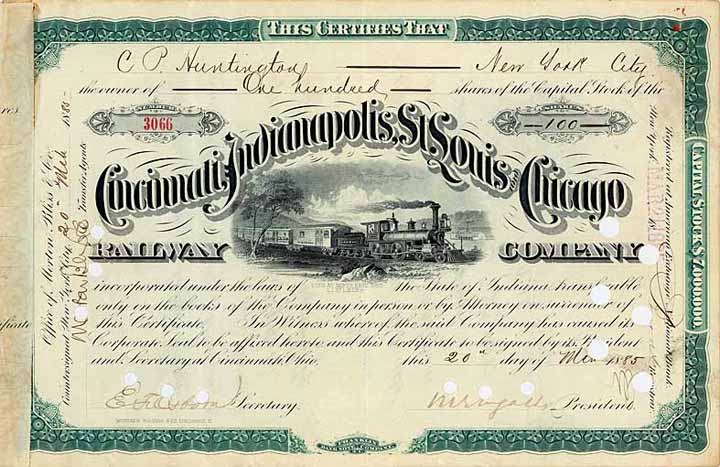 THIS CERTIFIES THAT
C P. Huntington — New York City
the owner of — One hundred — shares of the Capital Stock of the
NUMBER
3066
SHARES
—100—
Cincinnati, Indianapolis, St. Louis and Chicago
RAILWAY COMPANY
incorporated under the laws of the State of Indiana transferable
only on the books of the Company in person or by Attorney on surrender of
this Certificate. In Witness whereof, the said Company has caused its
Corporate Seal to be affixed hereto and this Certificate to be signed by its President
and Secretary at Cincinnati, Ohio. this 20th day of Mch 1885
Secretary.
President.
FRANKLIN
BANK NOTE COMPANY
Office of Morton Bliss & Co.
Countersigned New York City, 20th Mch 1885
Transfer Agents
CAPITAL STOCK $7,000,000.